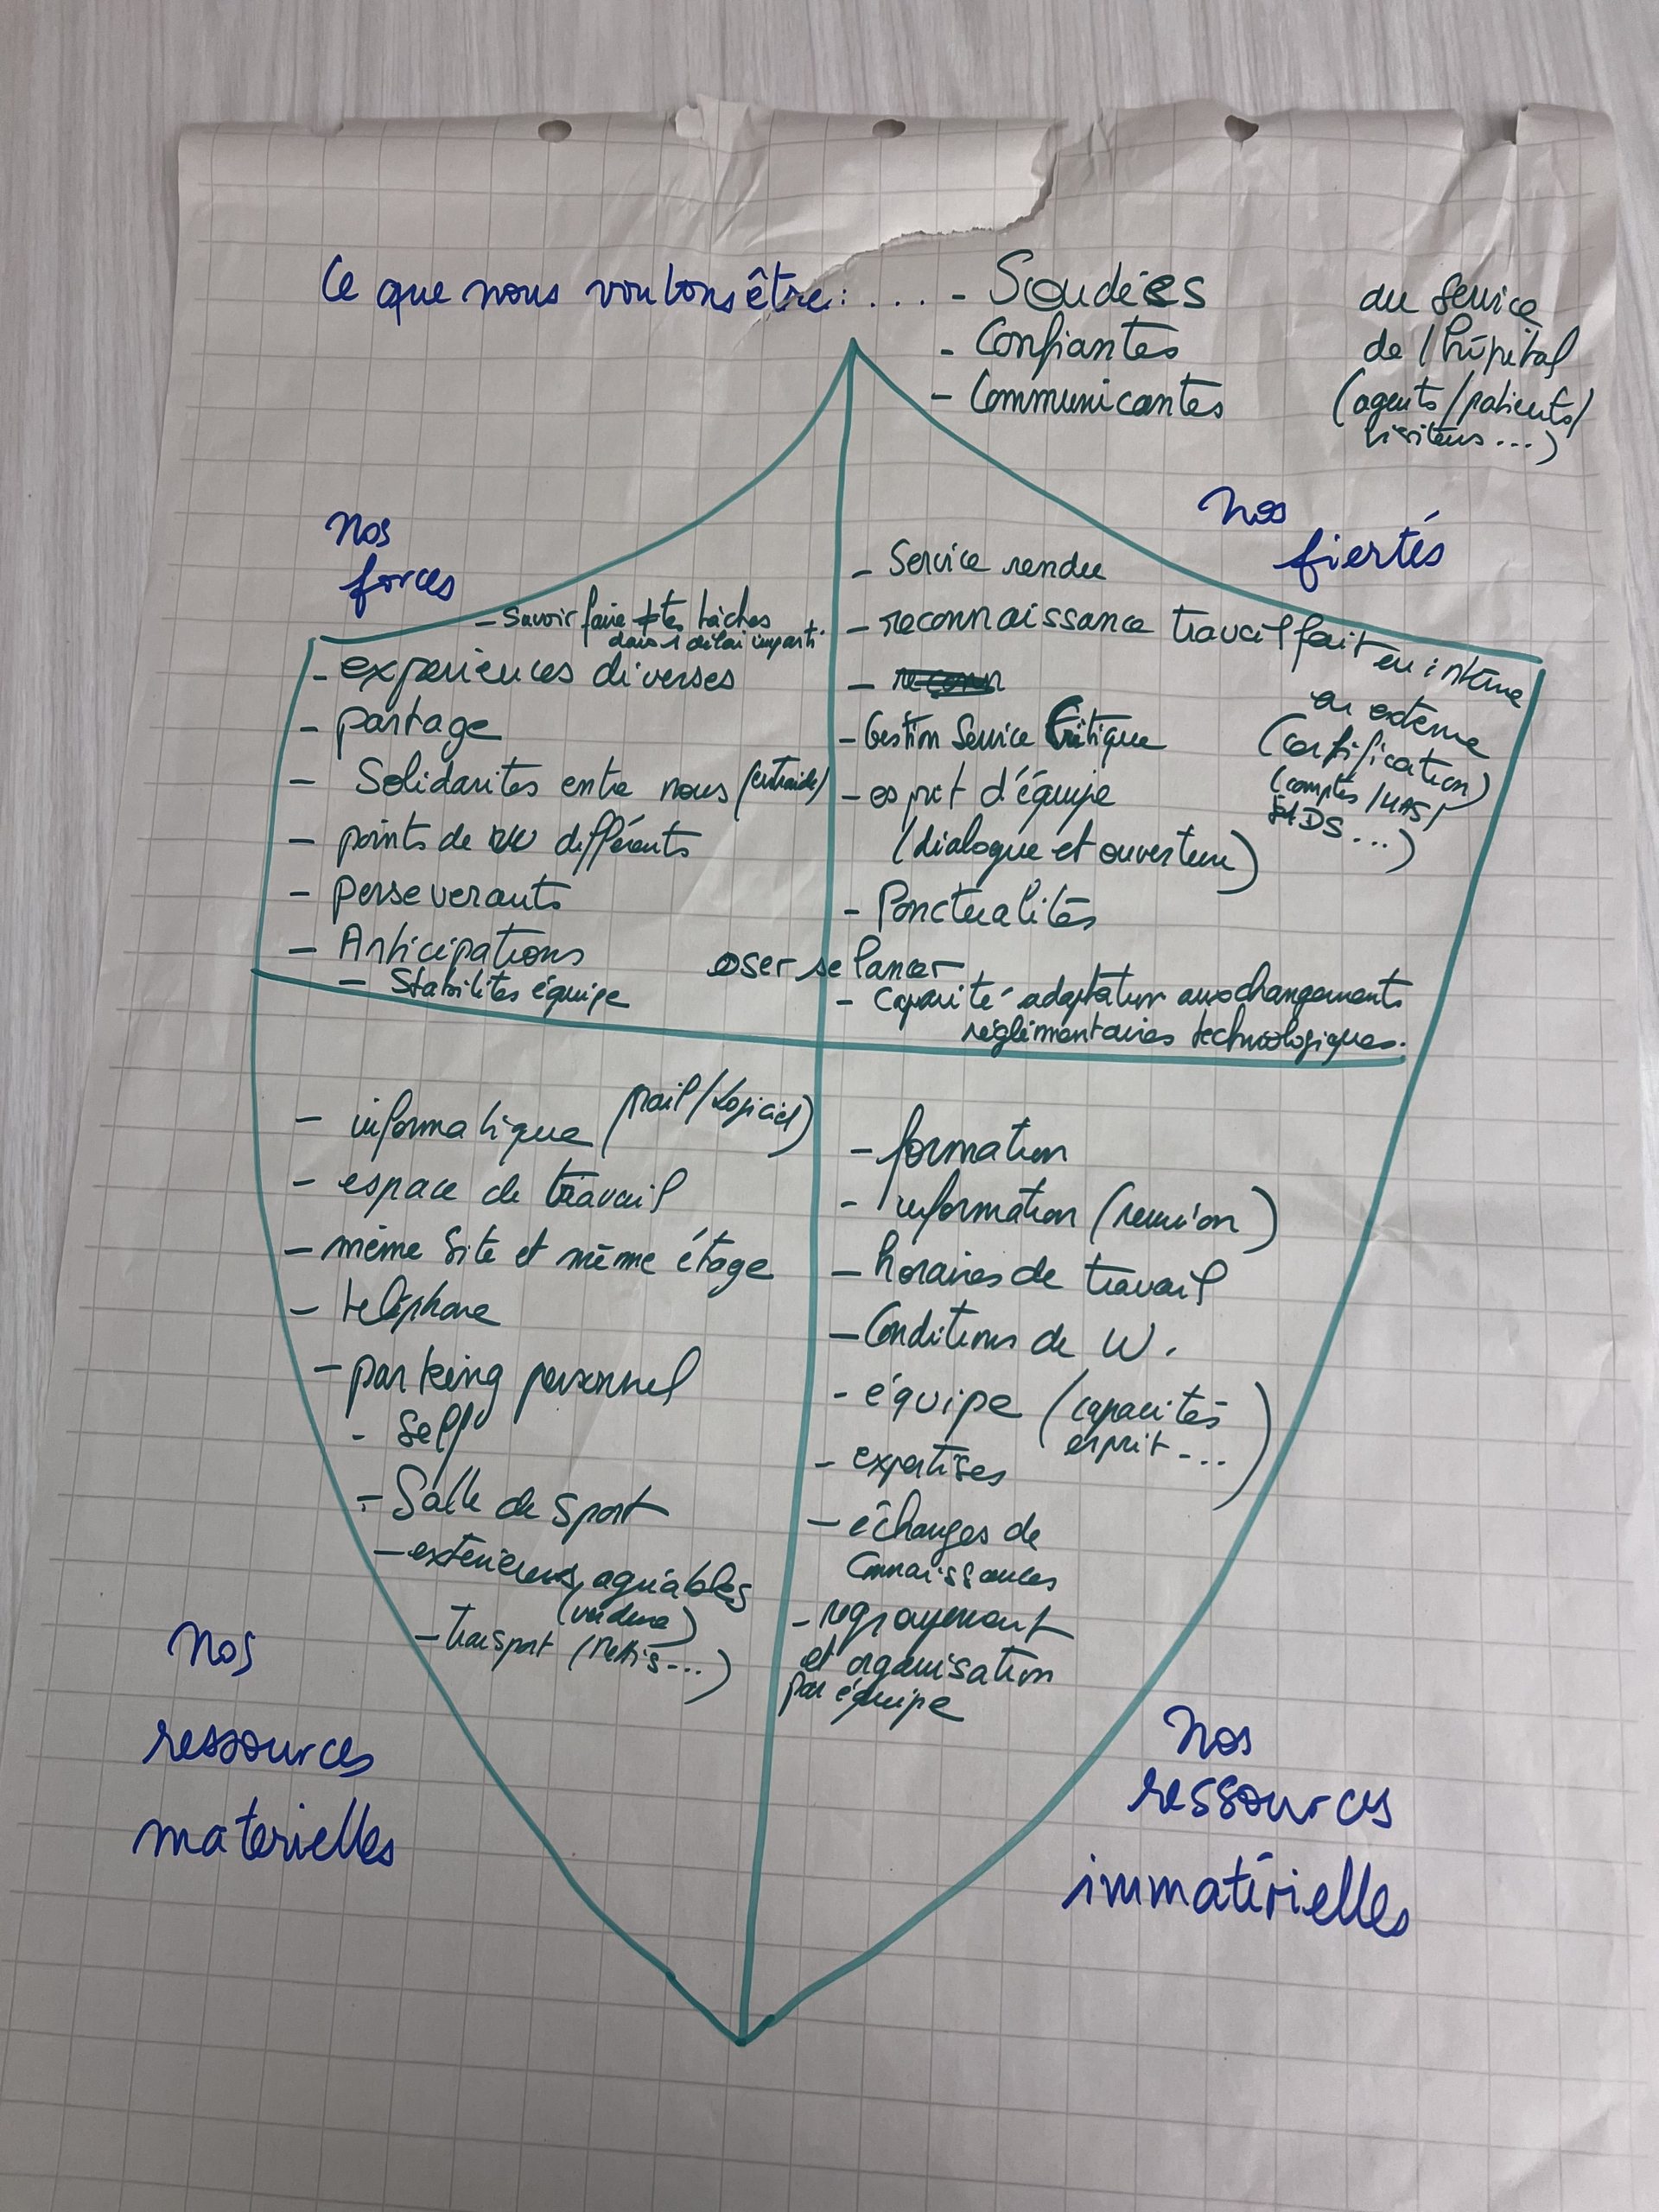 Ce que nous voulons être : .... - Soudées
- Confiantes
- Communicantes
au service
de l'hôpital
(agents/patients/
visiteurs...)
Nos
forces
- Savoir faire ≠tes tâches
dans 1 délai imparti
- expériences diverses
- partage
- Solidarités entre nous (entraide)
- points de vue différents
- perseverants
- Anticipations
- Stabilités équipe
oser se lancer
Nos
fiertés
- Service rendu
- reconnaissance travail fait en interne
ou externe
(certification)
(comptes/HAS/
...)
- Gestion Service Critique
- esprit d'équipe
(dialogue et ouverture)
- Ponctualités
- Capacité adaptation aux changements
réglementaires technologiques.
- informatique (mail/Logiciel)
- espace de travail
- même site et même étage
- téléphone
- parking personnel
- Self
- Salle de sport
- extérieurs agréables
(verdure)
- transport (...)
Nos
ressources
materielles
- formation
- information (reunion)
- horaires de travail
- Conditions de W.
- équipe (capacités
esprit...)
- expertises
- échanges de
connaissances
- regroupement
et organisation
par équipe
Nos
ressources
immatérielles